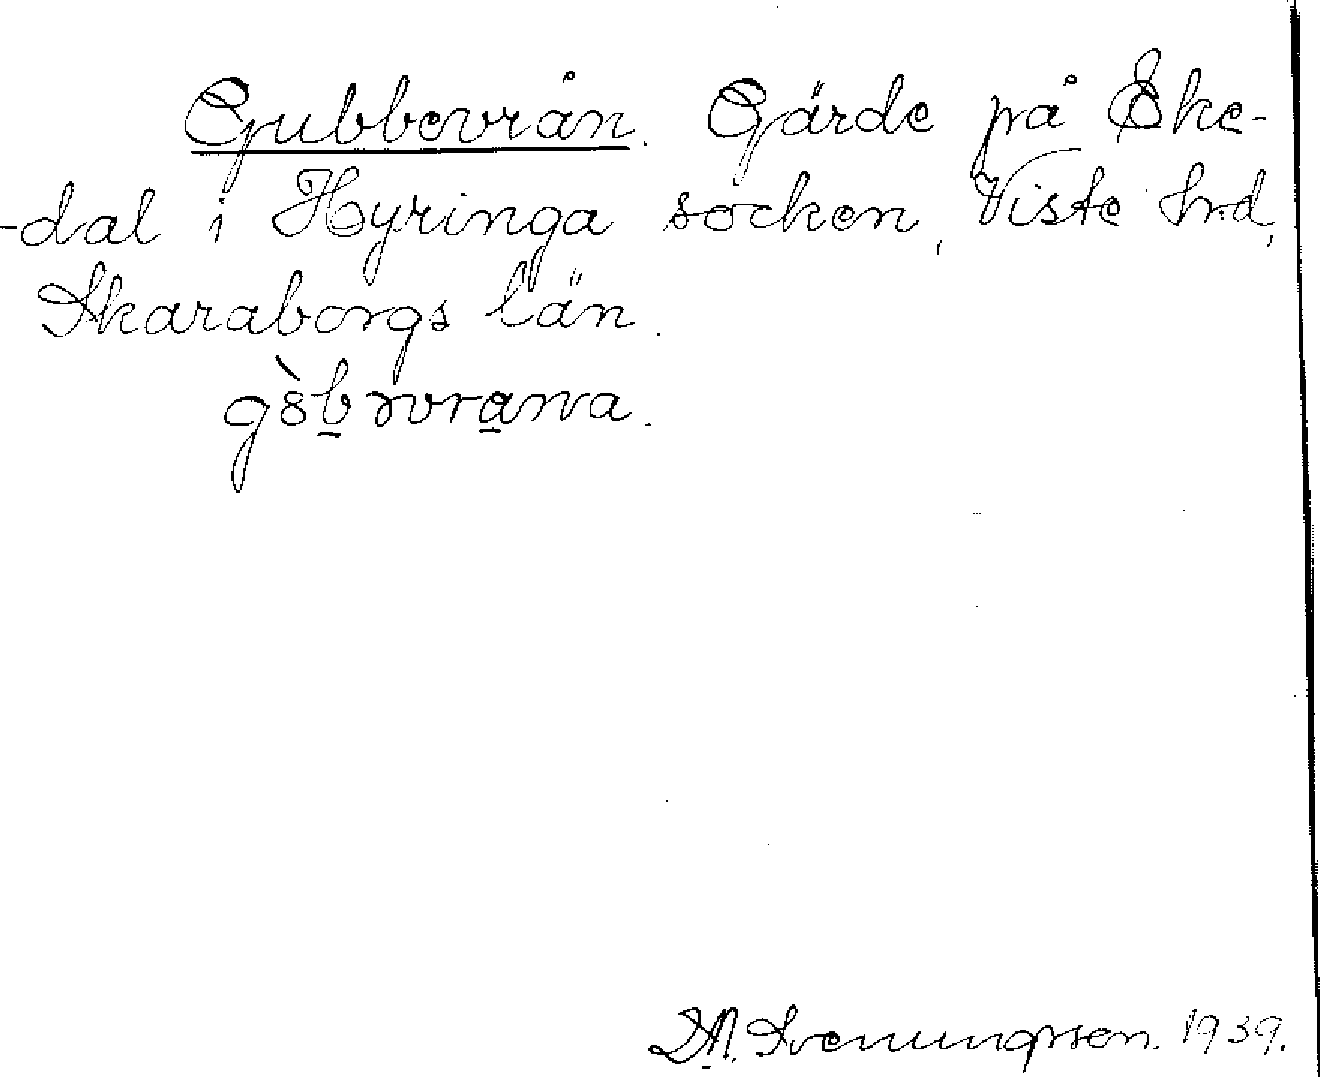 Gubbevrån. Gärde på Eke-
-dal i Hyringa socken, Viste hrd,
Skaraborgs län.
Svenungsson. 1939.